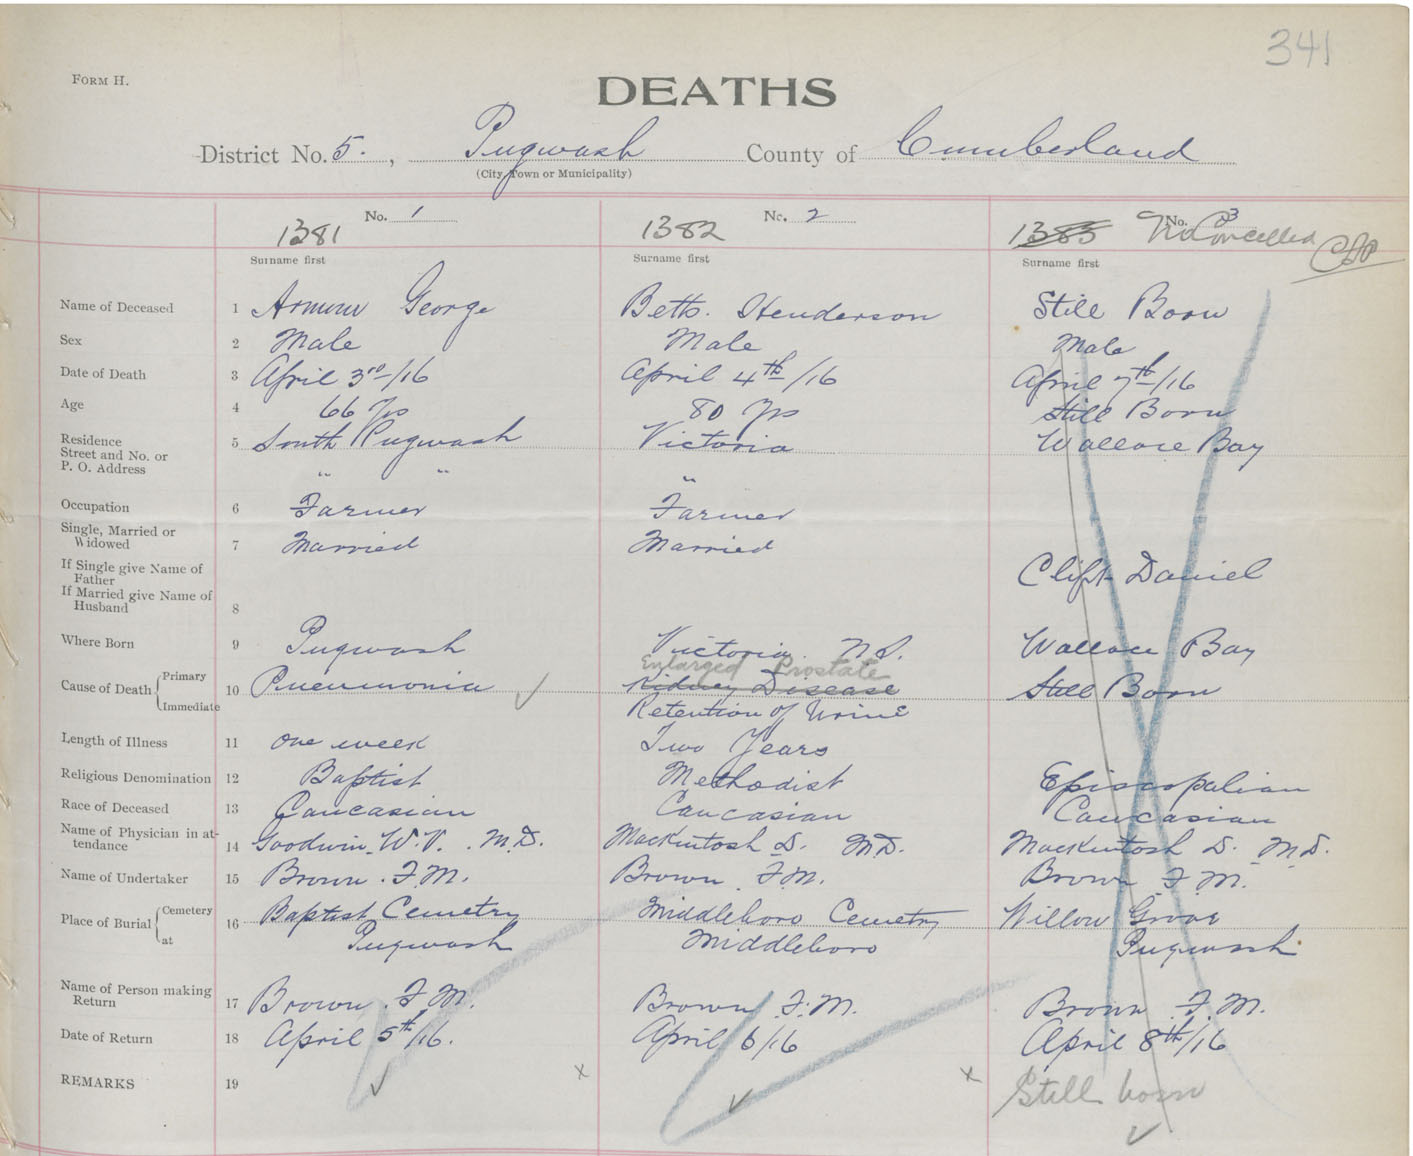 341
Form H.
DEATHS
District No. 5. , Pugwash County of Cumberland
(City Town or Municipality)
No. 1 No. 2 No. 3
1381 1382 1383 No Cancelled
Surname first Surname first Surname first
Name of Deceased 1 Armour George Betts. Henderson Still Born
Sex 2 Male Male Male
Date of Death 3 April 3rd/16 April 4th/16 April 7th/16
Age 4 66 Yrs 80 Yrs Still Born
Residence
Street and No. or
P. O. Address 5 South Pugwash Victoria Wallace Bay
" " "
Occupation 6 Farmer Farmer
Single, Married or
Widowed 7 Married Married
If Single give Name of
Father Clift Daniel
If Married give Name of
Husband 8
Where Born 9 Pugwash Victoria. N.S. Wallace Bay
Enlarged Prostate
Cause of Death Primary 10 Pneumonia Kidney Disease Still Born
Immediate Retention of Urine
Length of Illness 11 one week Two Years
Religious Denomination 12 Baptist Methodist Episcopalian
Race of Deceased 13 Caucasian Caucasian Caucasian
Name of Physician in at-
tendance 14 Goodwin W.V. M.D. Mackintosh D. M.D. Mackintosh D. M.D.
Name of Undertaker 15 Brown. F.M. Brown. F.M. Brown. F.M.
Place of Burial Cemetery 16 Baptist Cemetry Middleboro Cemetry Willow Grove
at Pugwash Middleboro Pugwash
Name of Person making
Return 17 Brown. F.M. Brown. F.M. Brown. F.M.
Date of Return 18 April 5th/16. April 6/16 April 8th/16
REMARKS 19 x x Still born